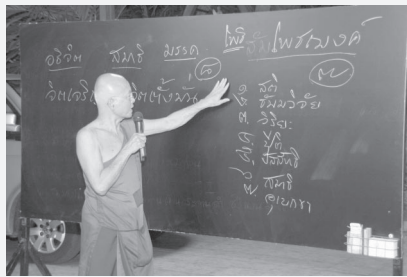 อธิจิต สมาธิ มรรค โพธิ สัมโพชฌงค์
จิตเจริญ จิตตั้งมั่น ๘ ๗
๑. สติ
๒. ธมมวิจัย
๓. วิริยะ
๔. ปีติ
๕. ปัสสัทธิ
๖. สมาธิ
๗. อุเบกขา